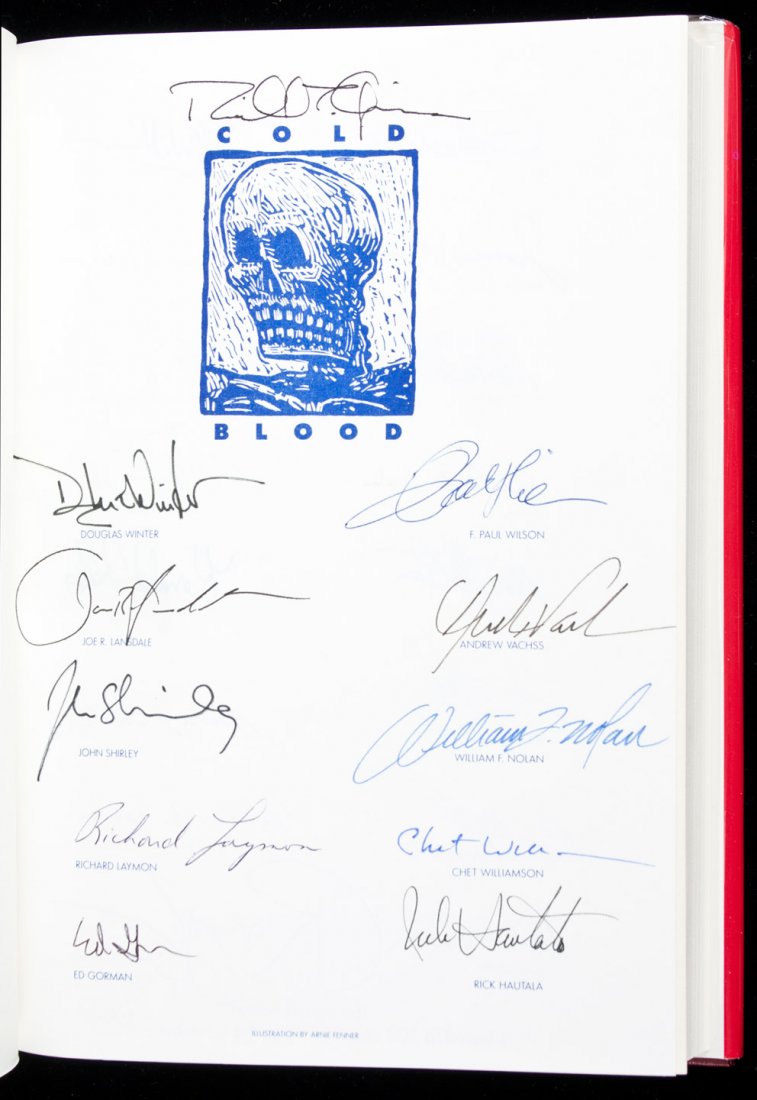 COLD
BLOOD
Douglas Winter
DOUGLAS WINTER
F. PAUL WILSON
Joe R. Lansdale
JOE R. LANSDALE
Andrew Vachss
ANDREW VACHSS
John Shirley
JOHN SHIRLEY
William F. Nolan
WILLIAM F. NOLAN
Richard Laymon
RICHARD LAYMON
Chet Williamson
CHET WILLIAMSON
Ed Gorman
ED GORMAN
Rick Hautala
RICK HAUTALA
ILLUSTRATION BY ARNIE FENNER